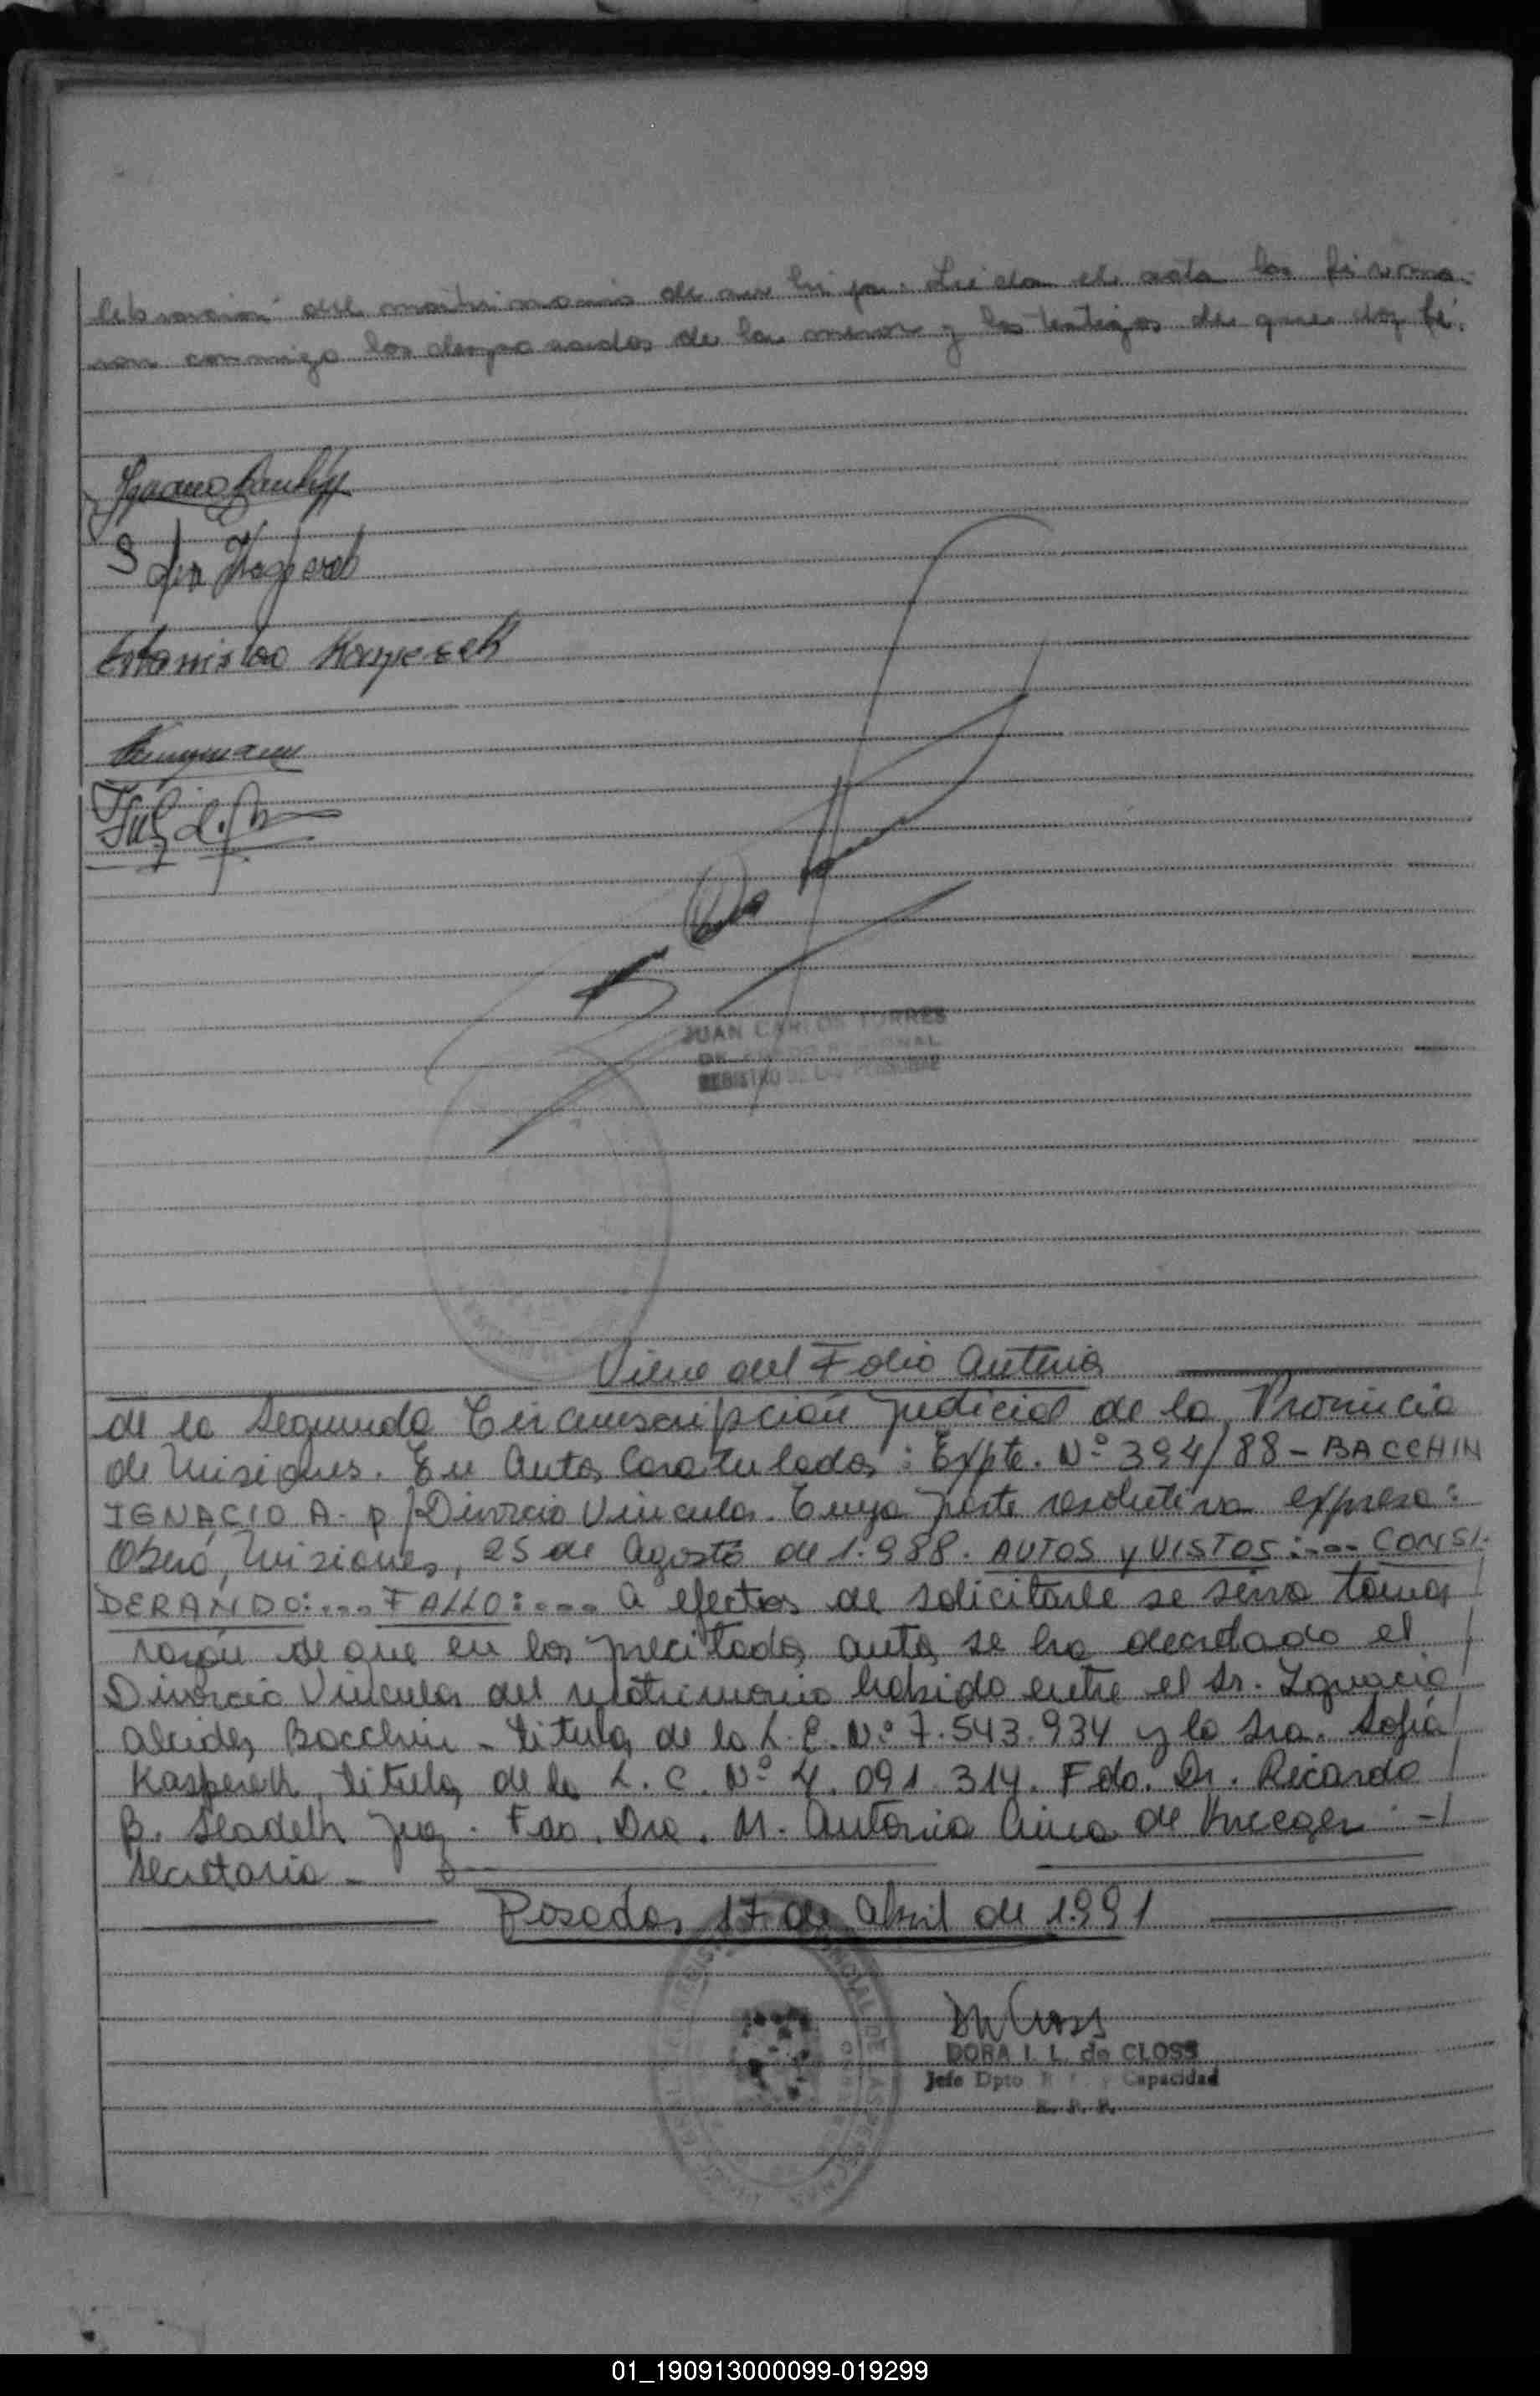 lebración del matrimonio de su hija. Leida el acta la firma-
ron conmigo los desposados de la menor y los testigos de que doy fé.
Sofia Kasperek
Estanislao Kasperek
JUAN CARLOS TORRES
REGISTRO DE LAS PERSONAS
Viene del Folio Anterior
de la Segunda Circunscripción Judicial de la Provincia
de Misiones. En Autos Caratulados: Expte. Nº 394/88 - BACCHIN
IGNACIO A. p/Divorcio Vincular. Cuya parte resolutiva expresa:
Oberá, Misiones, 25 de Agosto de 1.988. AUTOS y VISTOS:... CONSI-
DERANDO:... FALLO:... a efectos de solicitarle se sirva tomar
razón de que en los precitados autos se ha decretado el
Divorcio Vincular del matrimonio habido entre el Sr. Ignacio
Alcides Bacchin - titular de la L.E. Nº 7.543.934 y la Sra. Sofia
Kasperek, titular de la L.C. Nº 4.091.314. Fdo. Dr. Ricardo
B. Juez. Fdo. Dra. M. Antonia de Krieger -
Secretaria -
Posadas 17 de abril de 1991
DORA I. L. de CLOSS
Jefe Dpto y Capacidad
R. P. P.
01_190913000099-019299